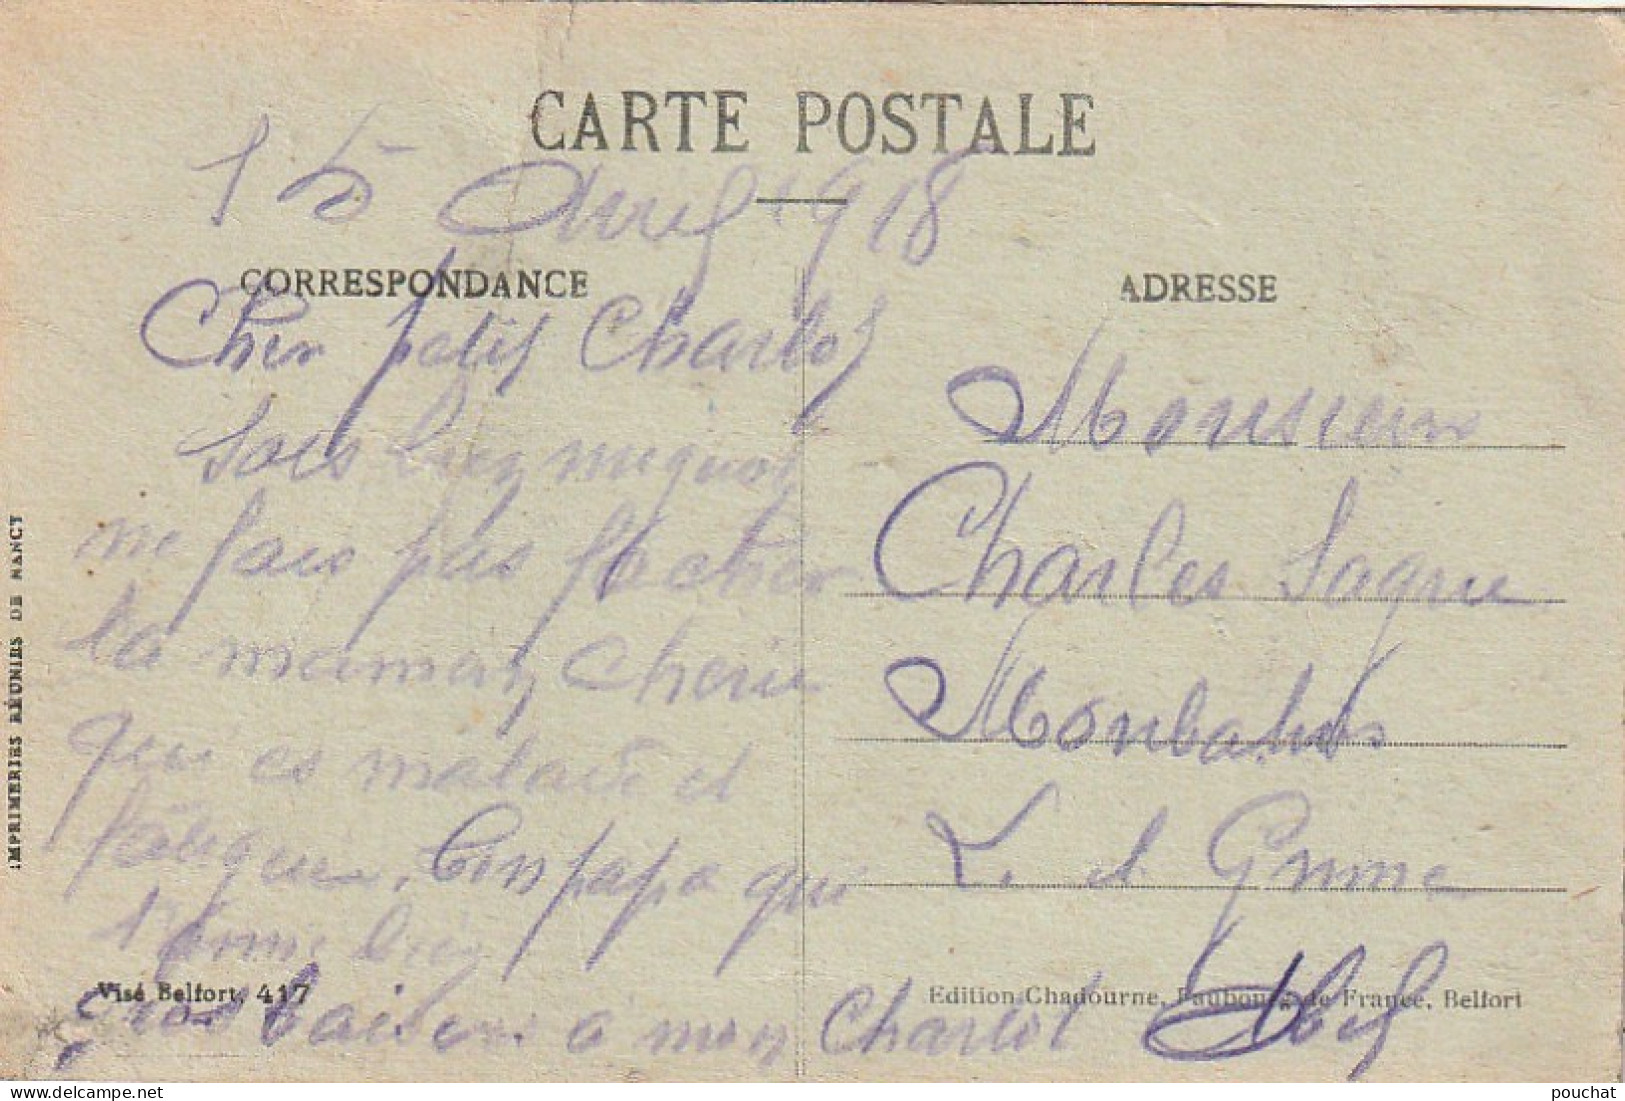 CARTE POSTALE
15 Avril 1918
CORRESPONDANCE
Cher petit Charlot
Sois bien mignon
ne fais pas facher
ta maman cherie
qui es malade et
fatiguée. Ton papa qui
t'aime bien
gros baisers a mon Charlot Abel
ADRESSE
Monsieur
Charles Sagne
Monbahus
L. et Garonne
Visé Belfort, 417
Edition Chadourne, Faubourg de France, Belfort
IMPRIMERIES RÉUNIES DE NANCY
pouchat